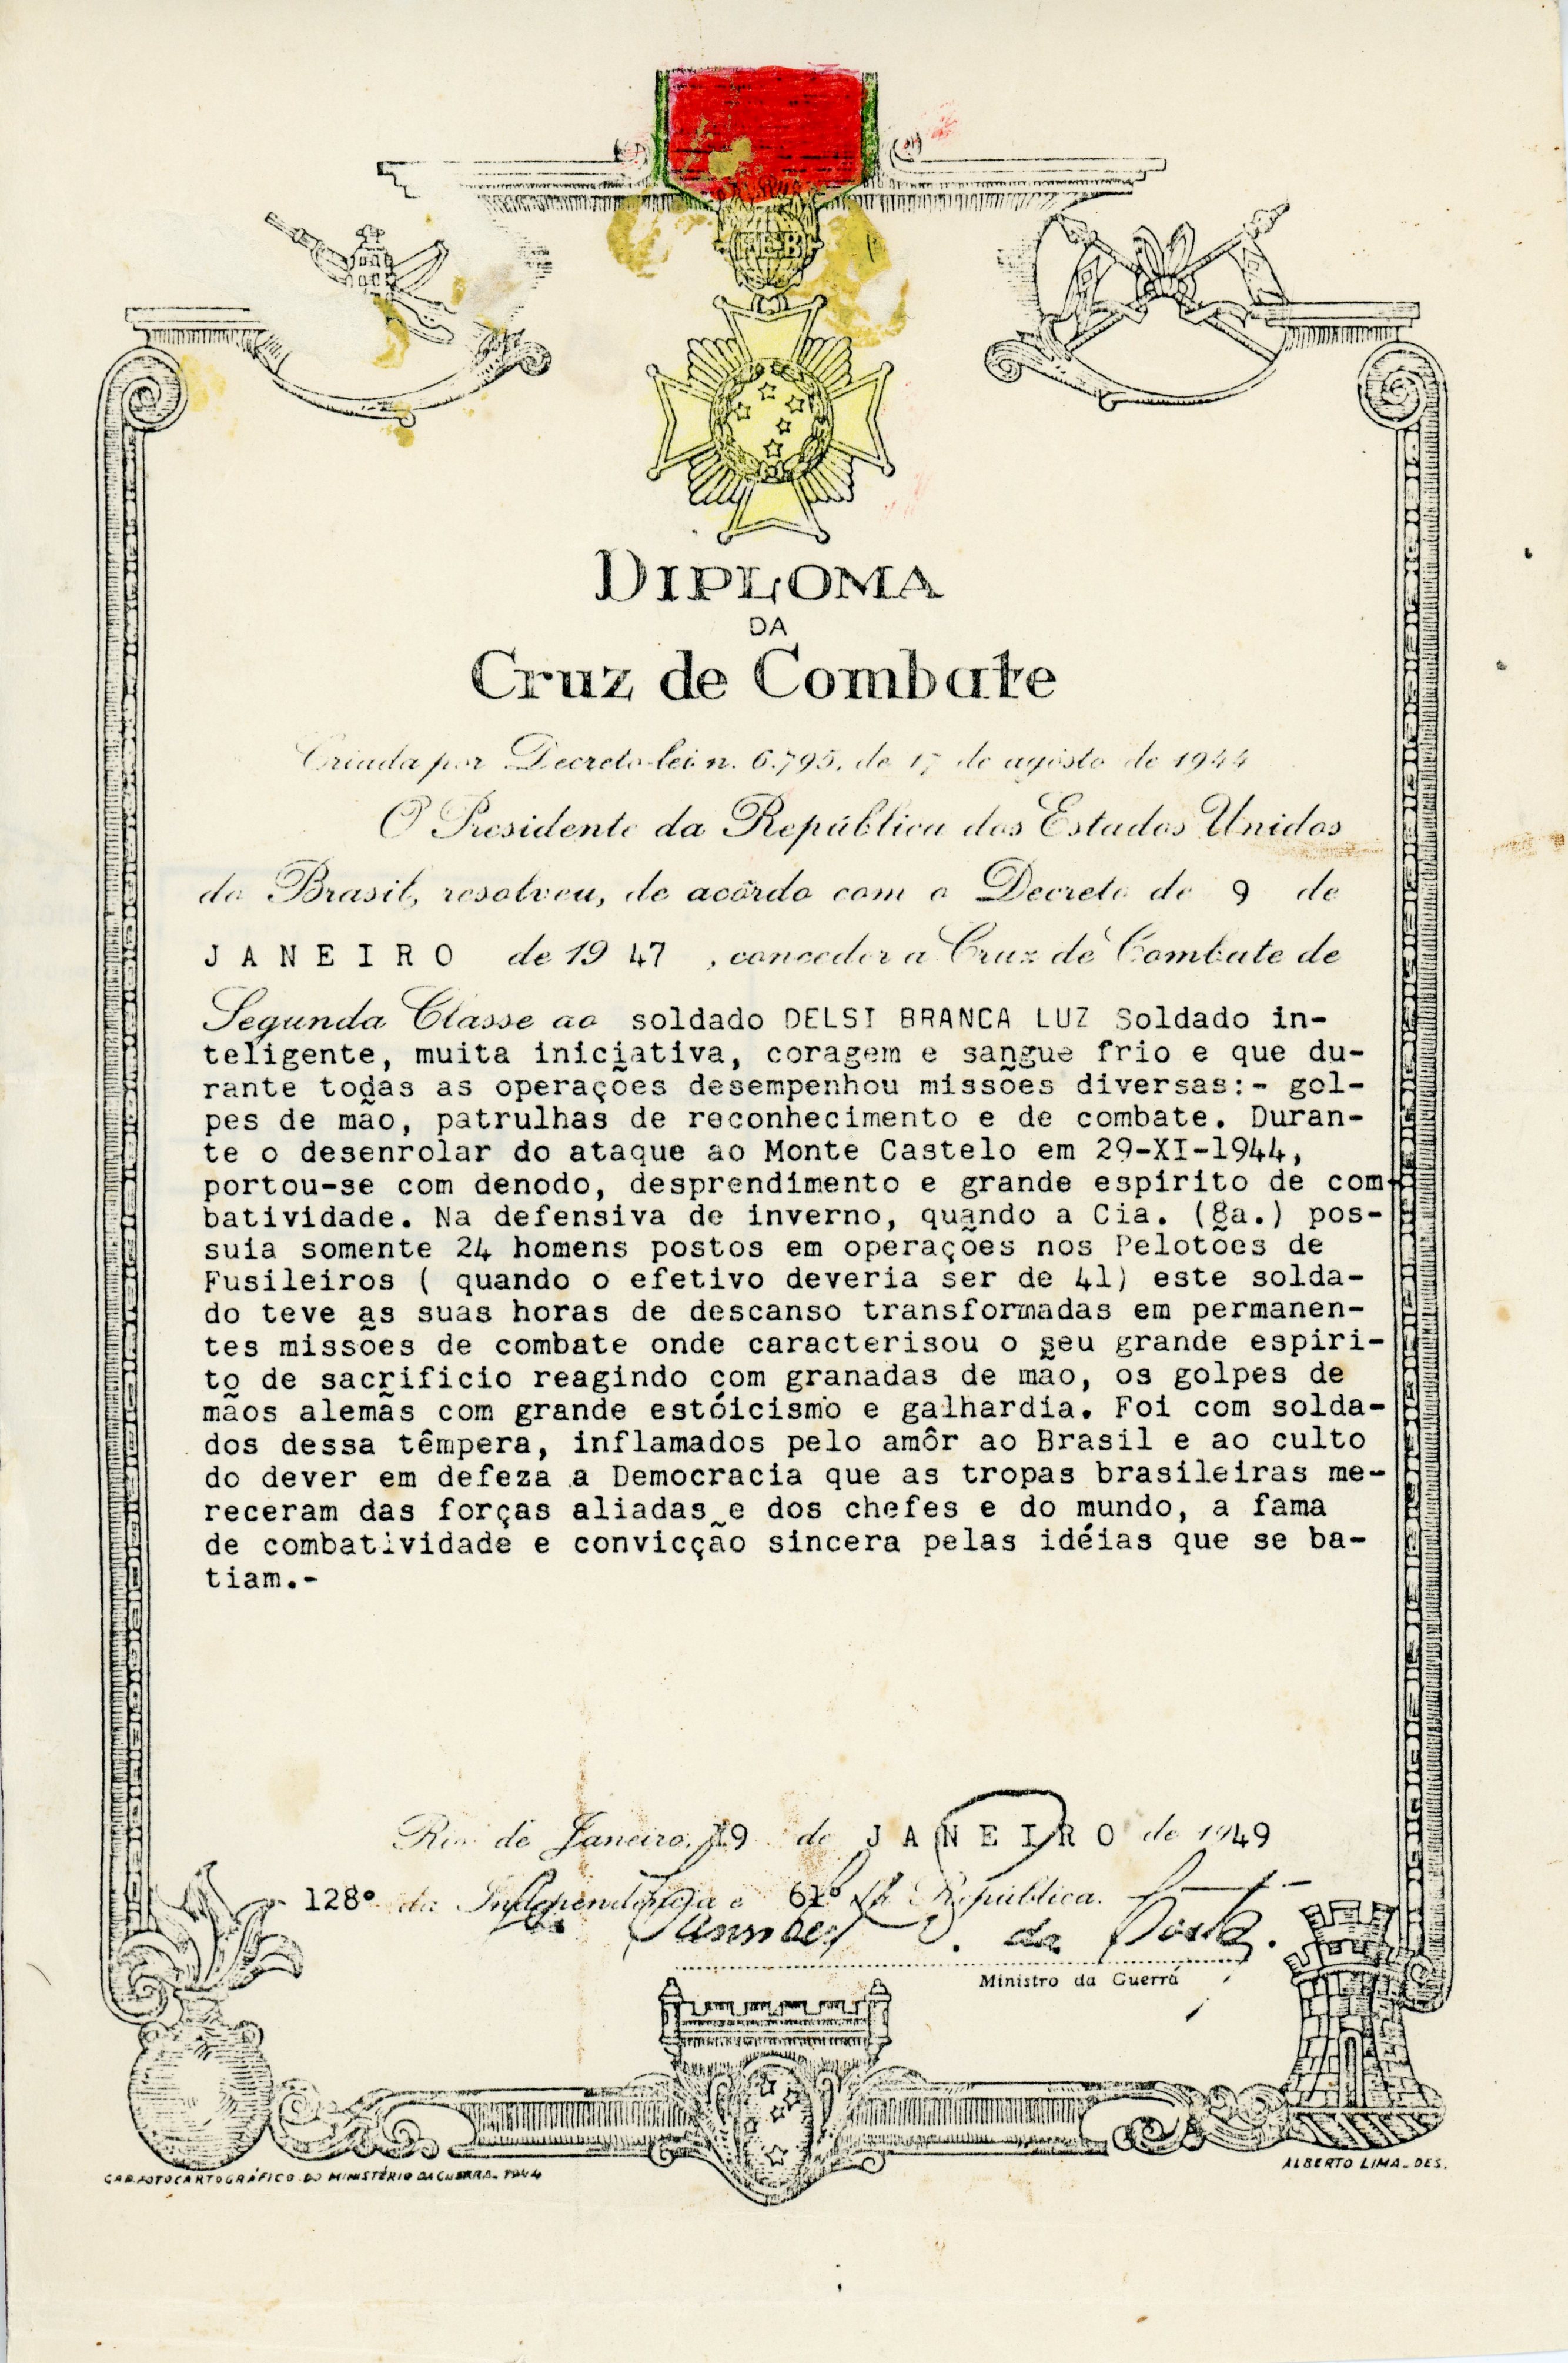 FEB
DIPLOMA
DA
Cruz de Combate
Criada por Decreto-lei n. 6.795, de 17 de agôsto de 1944
O Presidente da República dos Estados Unidos
do Brasil, resolveu, de acôrdo com o Decreto de 9 de
JANEIRO de 19 47 , conceder a Cruz de Combate de
Segunda Classe ao soldado DELSI BRANCA LUZ Soldado in-
teligente, muita iniciativa, coragem e sangue frio e que du-
rante todas as operações desempenhou missões diversas:- gol-
pes de mão, patrulhas de reconhecimento e de combate. Duran-
te o desenrolar do ataque ao Monte Castelo em 29-XI-1944,
portou-se com denodo, desprendimento e grande espirito de com-
batividade. Na defensiva de inverno, quando a Cia. (8a.) pos-
suia somente 24 homens postos em operações nos Pelotões de
Fusileiros ( quando o efetivo deveria ser de 41) este solda-
do teve as suas horas de descanso transformadas em permanen-
tes missões de combate onde caracterisou o seu grande espiri-
to de sacrificio reagindo com granadas de mão, os golpes de
mãos alemãs com grande estóicismo e galhardia. Foi com solda-
dos dessa têmpera, inflamados pelo amôr ao Brasil e ao culto
do dever em defeza a Democracia que as tropas brasileiras me-
receram das forças aliadas e dos chefes e do mundo, a fama
de combatividade e convicção sincera pelas idéias que se ba-
tiam.-
Rio de Janeiro, 19 de JANEIRO de 1949
128º da Independência e 61º da República.
Canrobert P. da Costa.
Ministro da Guerra
GAB. FOTOCARTOGRÁFICO DO MINISTÉRIO DA GUERRA - 1944
ALBERTO LIMA - DES.